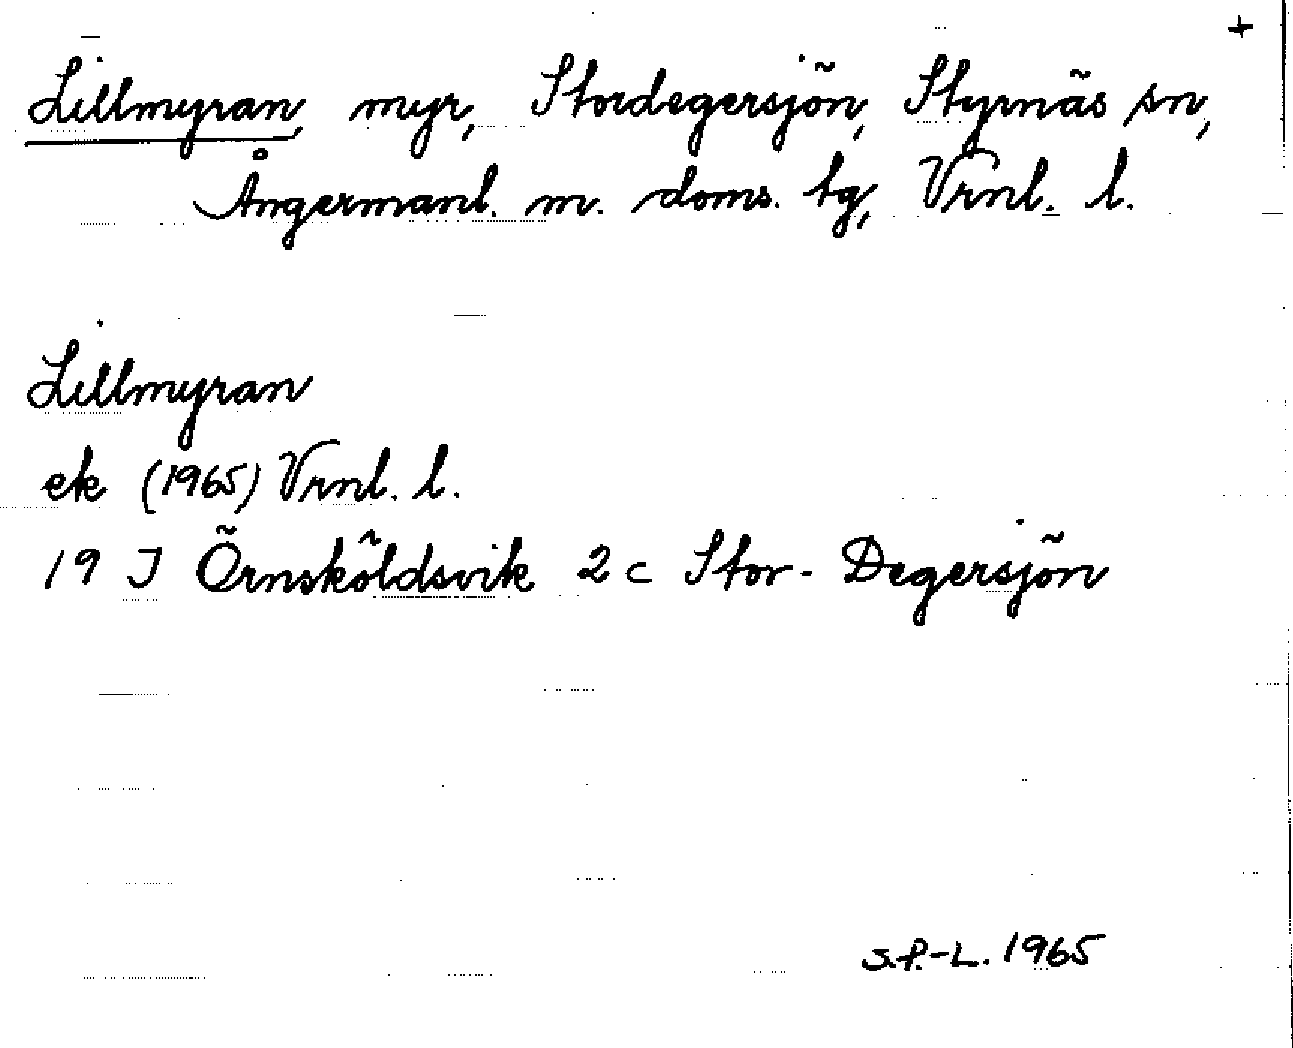 +
Lillmyran, myr, Stordegersjön, Styrnäs sn,
Ångermanl. m. doms. tg, Vrnl. l.
Lillmyran
ek (1965) Vrnl. l.
19 J Örnsköldsvik 2 c Stor-Degersjön
S.P.-L. 1965